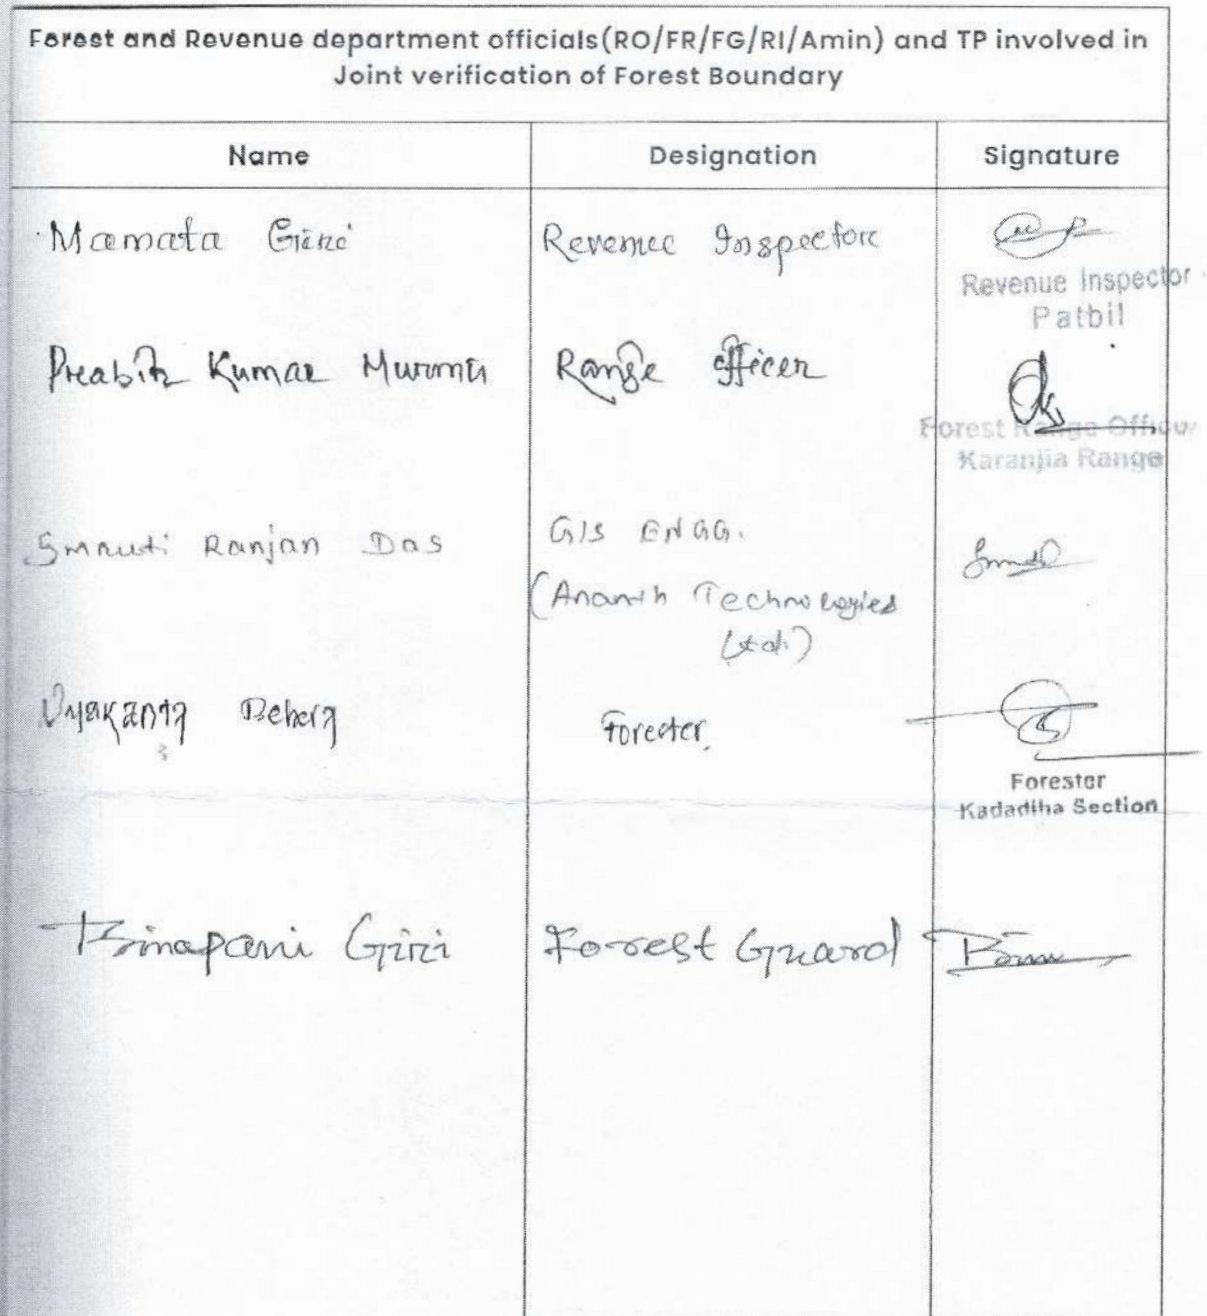 Forest and Revenue department officials(RO/FR/FG/RI/Amin) and TP involved in
Joint verification of Forest Boundary
Name Designation Signature
Mamata Revenue Inspector
Revenue Inspector
Patbil
Kumar Murmu Range Officer
Forest Range Officer
Karanjia Range
Smruti Ranjan Das GIS ENGG.
(Ananth Technologies
Ltd.)
Behera Forester
Forester
Kadadiha Section
Binapani Giri Forest Guard